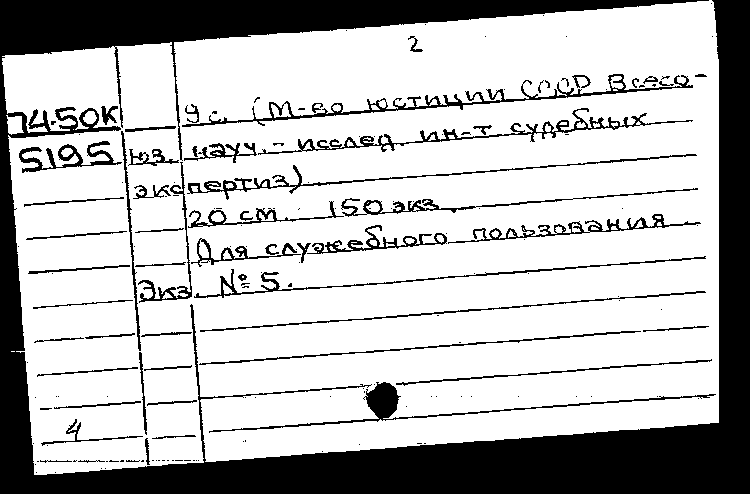 2
74-50К 9 с. (М-во юстиции СССР Всесо-
5195 юз. науч.-исслед. ин-т судебных
экспертиз)
20 см. 150 экз.
Для служебного пользования.
Экз. № 5.
4